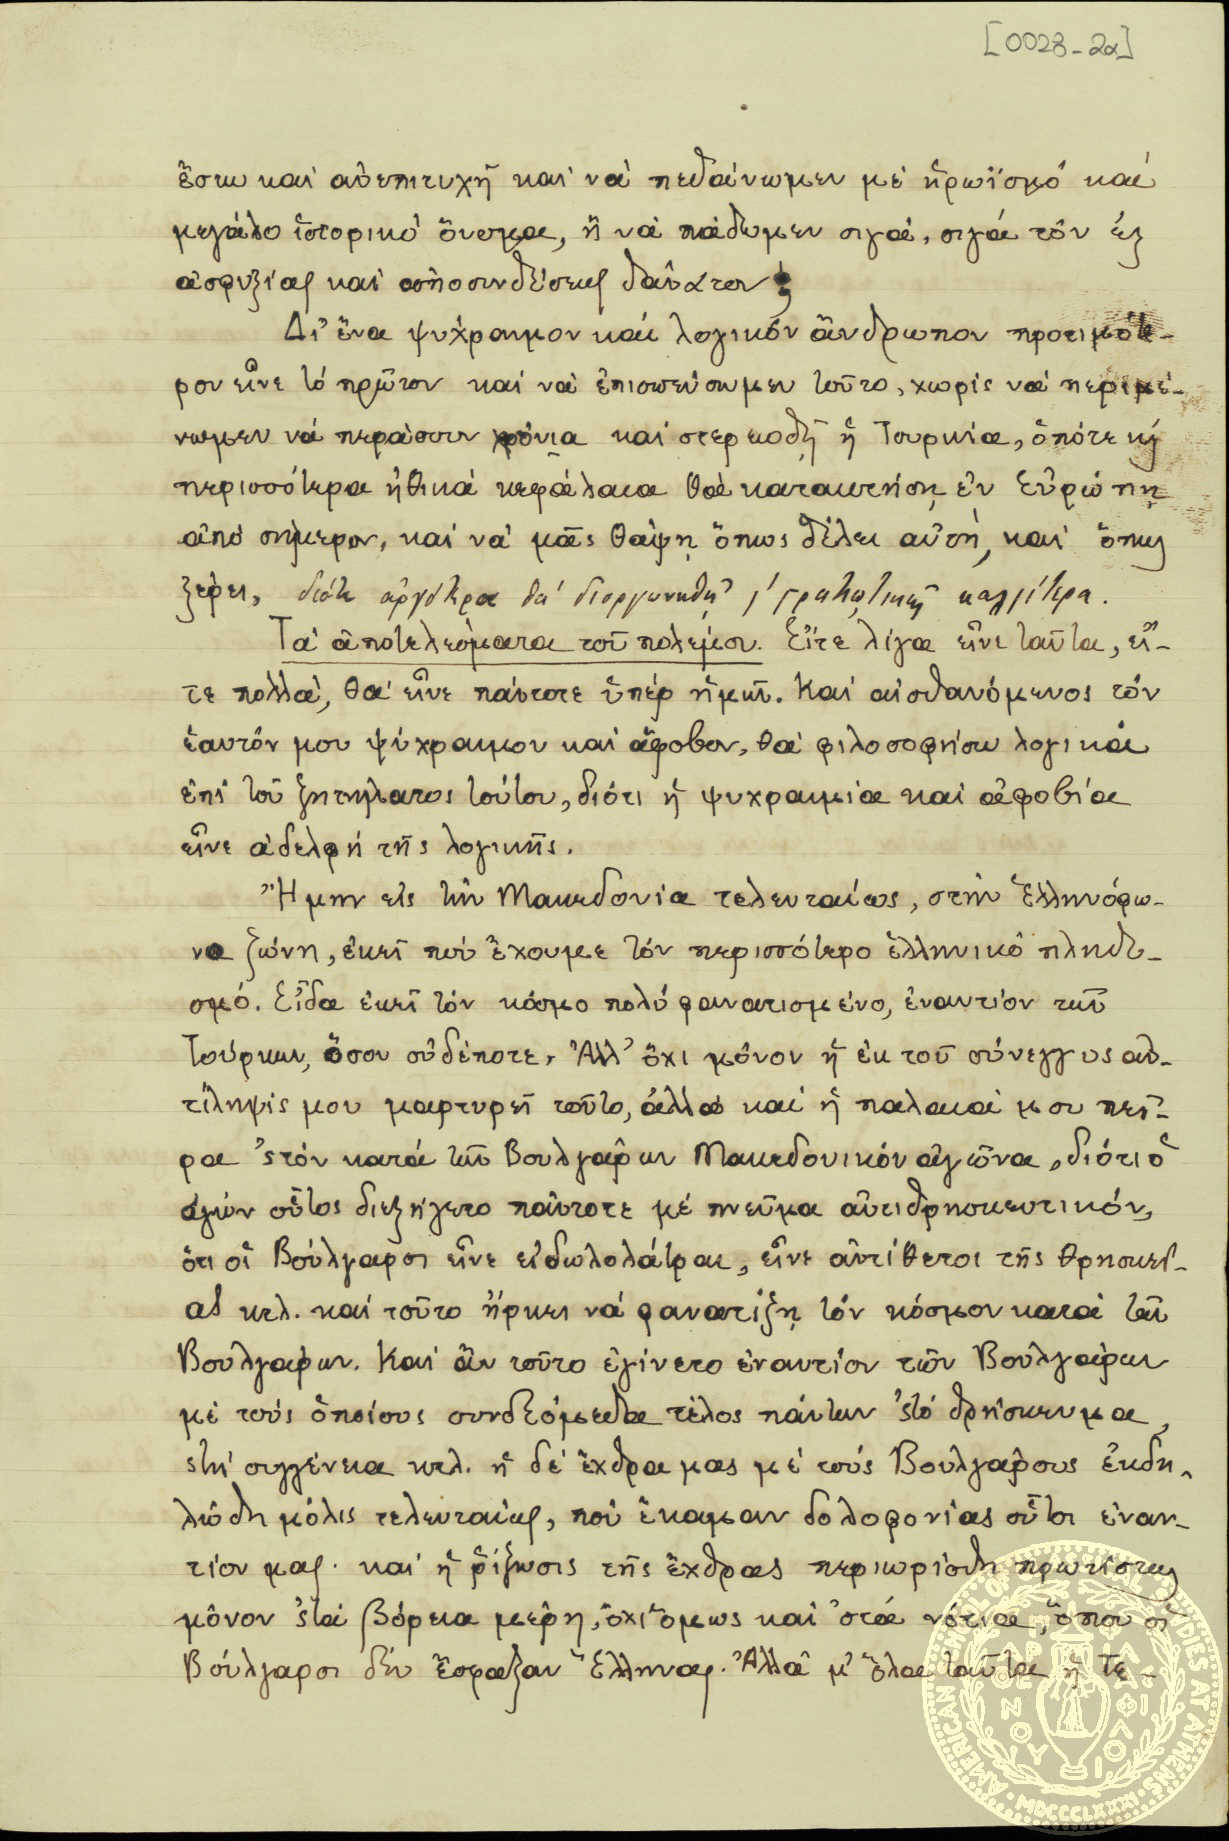 [0028-2α]
ἔστω καὶ ἀνεπιτυχῆ καὶ νὰ πεθάνωμεν μὲ ἡρωϊσμὸ καὶ
μεγάλο ἱστορικὸ ὄνομα, ἢ νὰ πάθωμεν σιγά, σιγά τὸν ἐξ
ἀσφυξίας καὶ ἀποσυνθέσεως θάνατον;
Δι᾿ ἕνα ψύχραιμον καὶ λογικὸν ἄνθρωπον προτιμότε-
ρον εἶνε τὸ πρῶτον καὶ νὰ ἐπισπεύσωμεν τοῦτο, χωρὶς νὰ περιμέ-
νωμεν νὰ περάσουν χρόνια καὶ στερεωθῇ ἡ Τουρκία, ὁπότε κ᾿
περισσότερα ἠθικὰ κεφάλαια θὰ κατακτήσῃ ἐν Εὐρώπῃ
ἀπὸ σήμερον, καὶ νὰ μᾶς θάψῃ ὅπως θέλει αὐτή, καὶ ὅπως
ξεύρει, διότι ἀργότερα θὰ διοργανωθῇ στρατιωτικῶς καλλίτερα.
Τὰ ἀποτελέσματα τοῦ πολέμου. Εἴτε λίγα εἶνε ταῦτα, εἴ-
τε πολλά, θὰ εἶνε πάντοτε ὑπὲρ ἡμῶν. Καὶ αἰσθανόμενος τὸν
ἑαυτόν μου ψύχραιμον καὶ ἄφοβον, θὰ φιλοσοφήσω λογικὰ
ἐπὶ τοῦ ζητήματος τούτου, διότι ἡ ψυχραιμία καὶ ἀφοβία
εἶνε ἀδελφὴ τῆς λογικῆς.
Ἤμην εἰς τὴν Μακεδονία τελευταίως, στὴν Ἑλληνόφω-
να ζώνη, ἐκεῖ ποὺ ἔχουμε τὸν περισσότερο ἑλληνικὸ πληθυ-
σμό. Εἶδα ἐκεῖ τὸν κόσμο πολὺ φανατισμένο, ἐναντίον τῶν
Τούρκων, ὅσον οὐδέποτε. Ἀλλ᾿ ὄχι μόνον ἡ ἐκ τοῦ σύνεγγυς ἀν-
τίληψίς μου μαρτυρεῖ τοῦτο, ἀλλὰ καὶ ἡ παλαιά μου πεῖ-
ρα ᾿στὸν κατὰ τῶν Βουλγάρων Μακεδονικὸν ἀγῶνα, διότι ὁ
ἀγὼν οὗτος διεξήγετο πάντοτε μὲ πνεῦμα ἀντιθρησκευτικόν,
ὅτι οἱ Βούλγαροι εἶνε εἰδωλολάτραι, εἶνε ἀντίθετοι τῆς θρησκεί-
ας κτλ. καὶ τοῦτο ἤρκει νὰ φανατίζῃ τὸν κόσμον κατὰ τῶν
Βουλγάρων. Καὶ ἂν τοῦτο ἐγίνετο ἐναντίον τῶν Βουλγάρων
μὲ τοὺς ὁποίους συνδεόμεθα τέλος πάντων ᾿στὸ θρήσκευμα,
στὴ συγγένεια κτλ. ἡ δὲ ἔχθρα μας μὲ τοὺς Βουλγάρους ἐκδη-
λώθη μόλις τελευταίως, ποὺ ἔκαμαν δολοφονίας οὗτοι ἐναν-
τίον μας. καὶ ἡ ῥίζωσις τῆς ἔχθρας περιωρίσθη πρωτίστως
μόνον ᾿στὰ βόρεια μέρη, ὄχι ὅμως καὶ ᾿στὰ νότια, ὅπου οἱ
Βούλγαροι δὲν ἔσφαξαν Ἕλληνας. Ἀλλὰ μ᾿ ὅλα ταῦτα ἡ τε-
AMERICAN SCHOOL OF CLASSICAL STUDIES AT ATHENS · MDCCCLXXXI ·